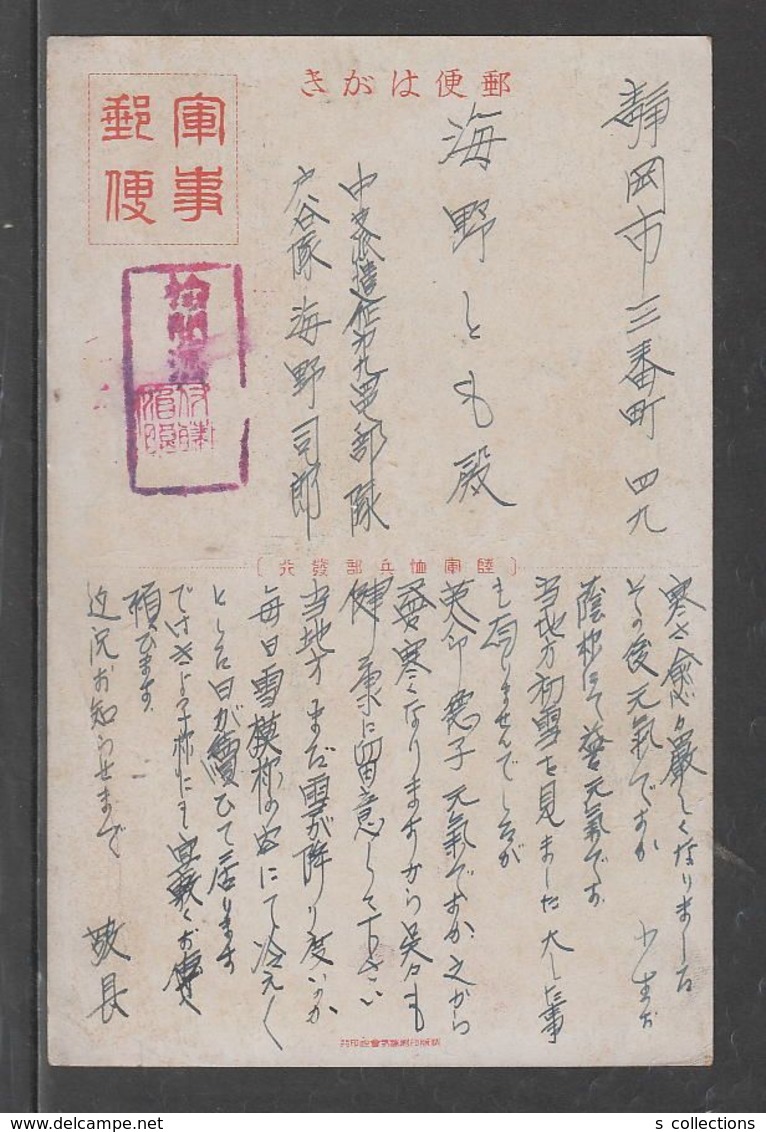 郵便はがき
軍事
郵便
静岡市三番町 四九
海野とも殿
中支派遣
部隊
戸谷隊 海野司郎
陸軍恤兵部發行
寒さ愈々嚴しくなりました
その後元氣ですか 小生お
蔭様にて益〻元氣です
当地方初雪を見ました 大した事
も有りませんでしたが
英介 元氣ですか 之から
寒くなりますから呉々も
健康に留意して下さい
当地方まだ雪が降り度いのか
毎日雪模様の空にて冷えく
とした日が續ひて居ります
でけさよ子様にも宜敷くお傳へ
頼ひます
近況お知らせまで 敬具
s collections
www.delcampe.net